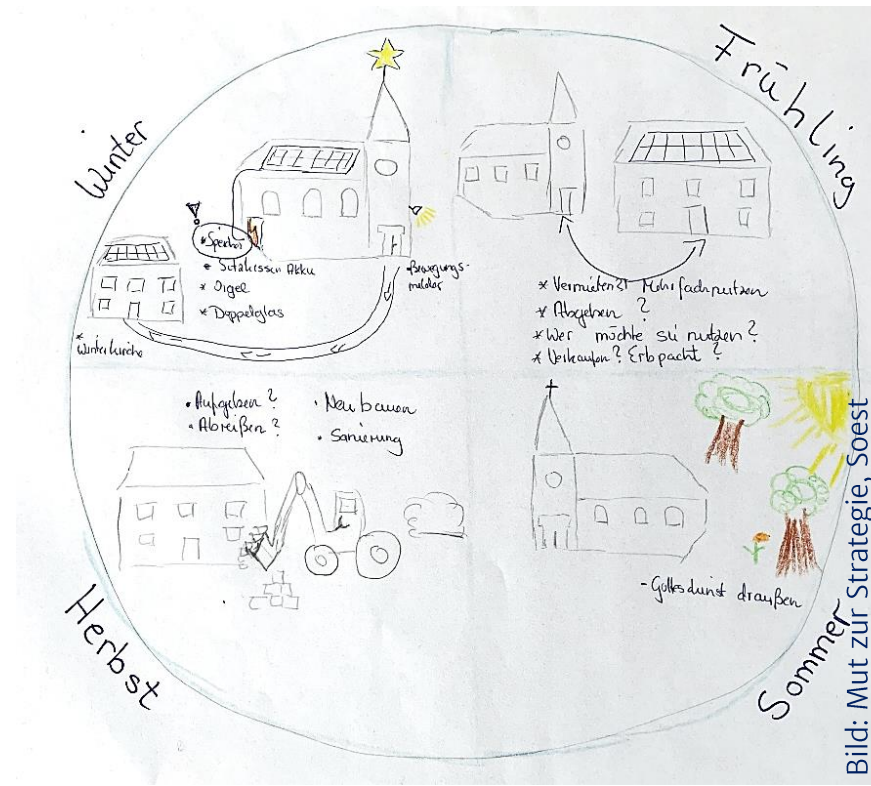 Winter
Frühling
* Speicher
* Sitzkissen Akku
* Orgel
* Doppelglas
Bewegungs-
melder
* Winterkirche
* Vermieten? Mehrfachnutzen
* Abgeben?
* Wer möchte sie nutzen?
* Verkaufen? Erbpacht?
• Aufgeben?
• Abreißen?
• Neubauen
• Sanierung
- Gottesdienst draußen
Herbst
Sommer
Bild: Mut zur Strategie, Soest